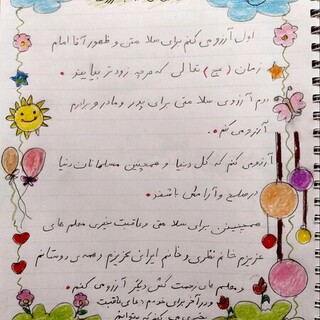 اول آرزو می کنم برای سلامتی و ظهور آقا امام
زمان (عج) تعالی که هرچه زودتر بیایند
دوم آرزوی سلامتی برای پدر و مادر و برادرم
آرزو می کنم.
آرزو می کنم که کل دنیا و همچنین مسلمانان دنیا
در صلح و آرامش باشند.
همچنین برای سلامتی و عاقبت بخیری معلم های
عزیزم خانم نظری و خانم ایرانی عزیزم و همه ی دوستانم
و معلم های زحمت کش دیگر آرزو می کنم
و در آخر برای خودم دعای عاقبت